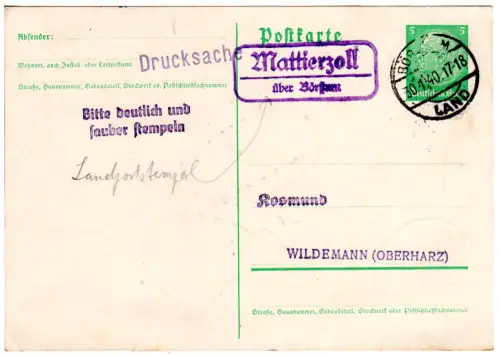 Postkarte
Absender:
Wohnort, auch Zustell- oder Leitpostamt
Straße, Hausnummer, Gebäudeteil, Stockwerk od. Postschließfachnummer
Drucksache
Mattierzoll
über Börßum
5 5
17-18
LAND
Bitte deutlich und
sauber stempeln
Landpoststempel
Rosmund
WILDEMANN (OBERHARZ)
Straße, Hausnummer, Gebäudeteil, Stockwerk oder Postschließfachnummer